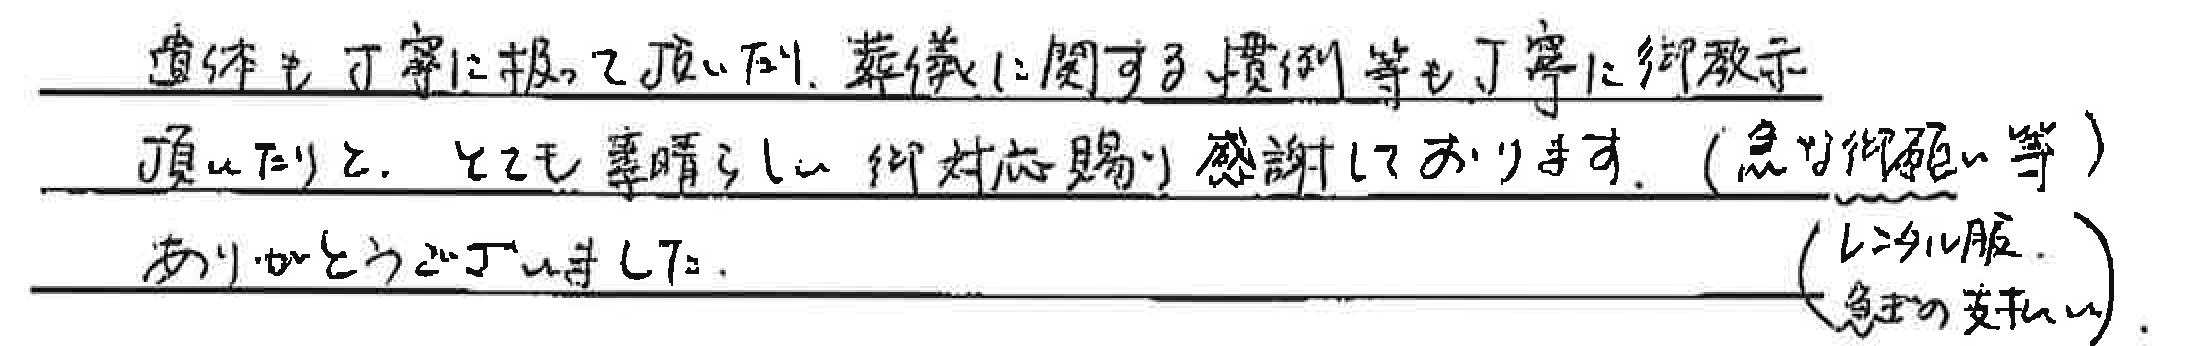 遺体も丁寧に扱って頂いたり、葬儀に関する慣例等も丁寧に御教示
頂いたりと、とても素晴らしい御対応賜り感謝しております。(急な御願い等)
ありがとうございました。
(レンタル服、
急ぎの支払い)。